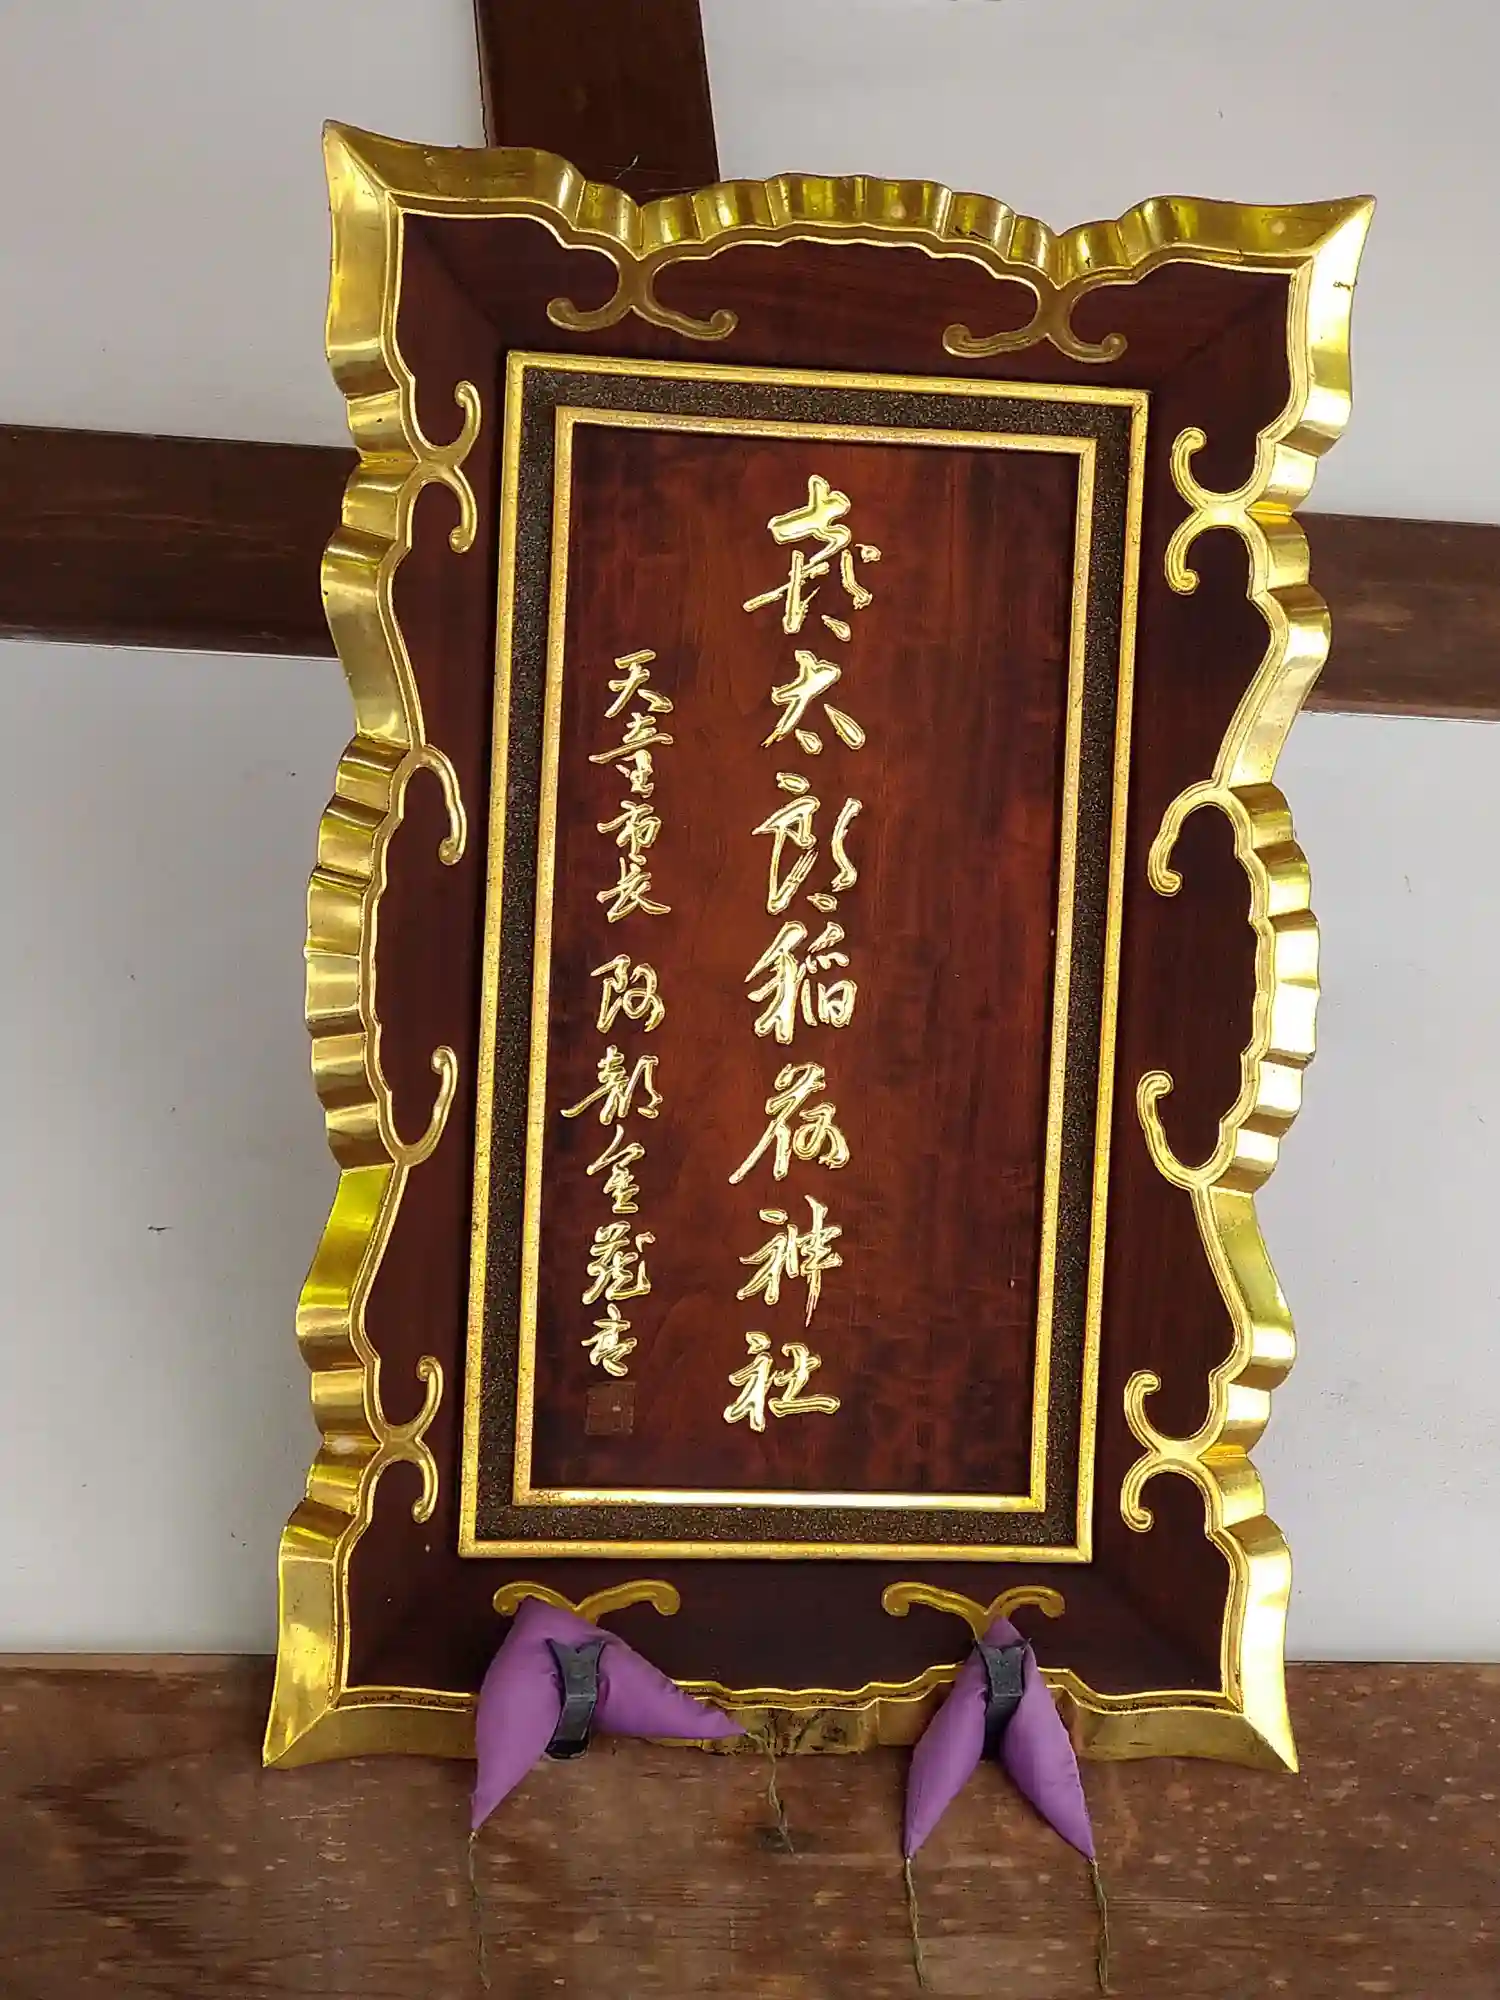 喜太郎稲荷神社
天童市長 阿部金蔵書